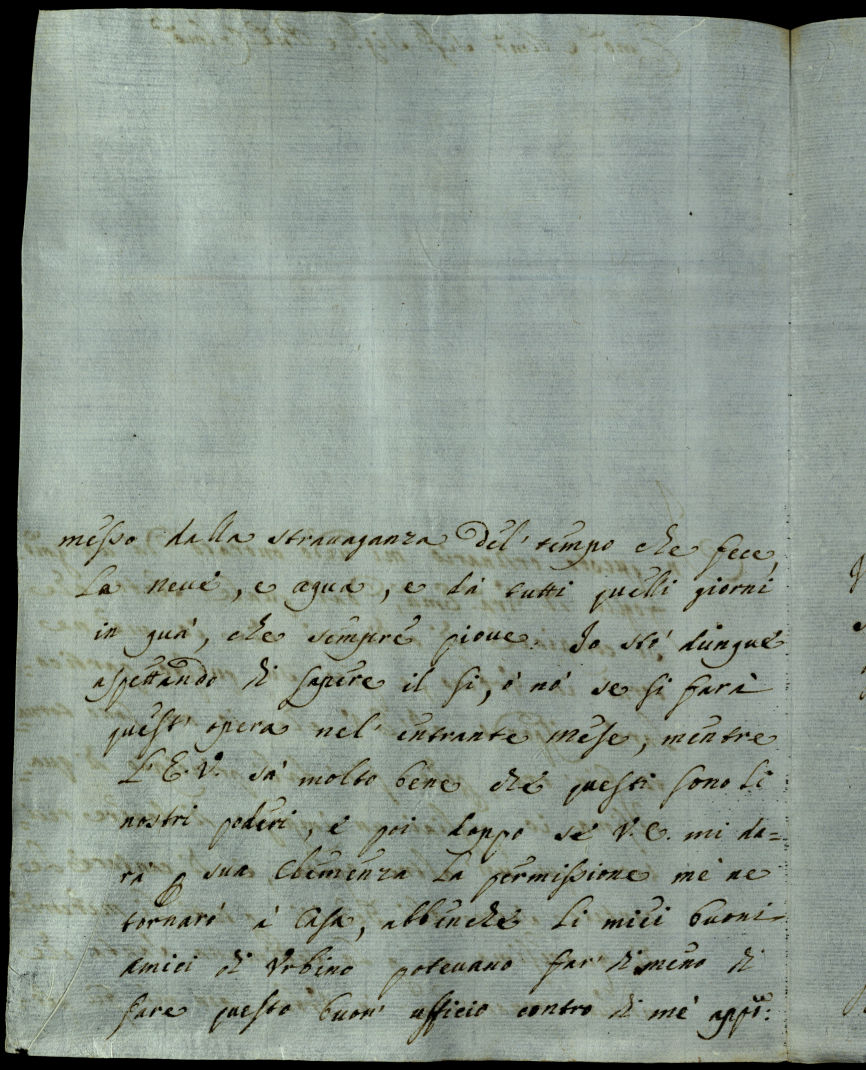 messo dalla stravaganza del' tempo che fece
la neve, e aqua, e da tutti quelli giorni
in quà, che sempre piove. Io stò dunque
aspettando di sapere il si, ò nò se si farà
quest' opera nel' entrante mese, mentre
L'E.V. sà molto bene che questi sono li
nostri poderi, e poi doppo se V.E. mi da=
rà p sua Clemenza la permissione me ne
tornarò à Casa, abbenche li miei buoni
amici di Urbino potevano far' di meno di
fare questo buon' ufficio contro di me